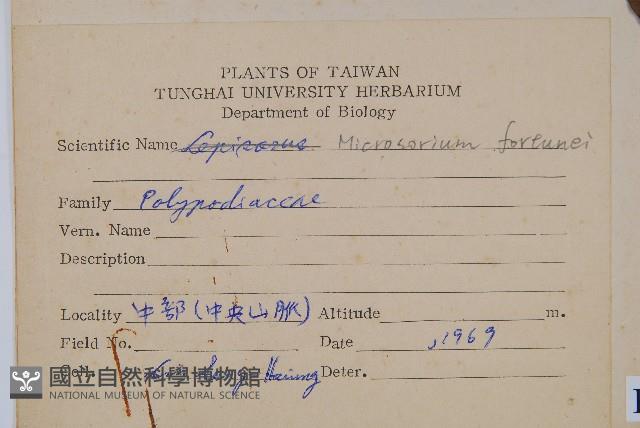 PLANTS OF TAIWAN
TUNGHAI UNIVERSITY HERBARIUM
Department of Biology
Scientific Name Lepisorus Microsorium fortunei
Family Polypodiaceae
Vern. Name
Description
Locality 中部(中央山脈) Altitude m.
Field No. Date , 1969
Coll. Hsiung Deter.
國立自然科學博物館
NATIONAL MUSEUM OF NATURAL SCIENCE